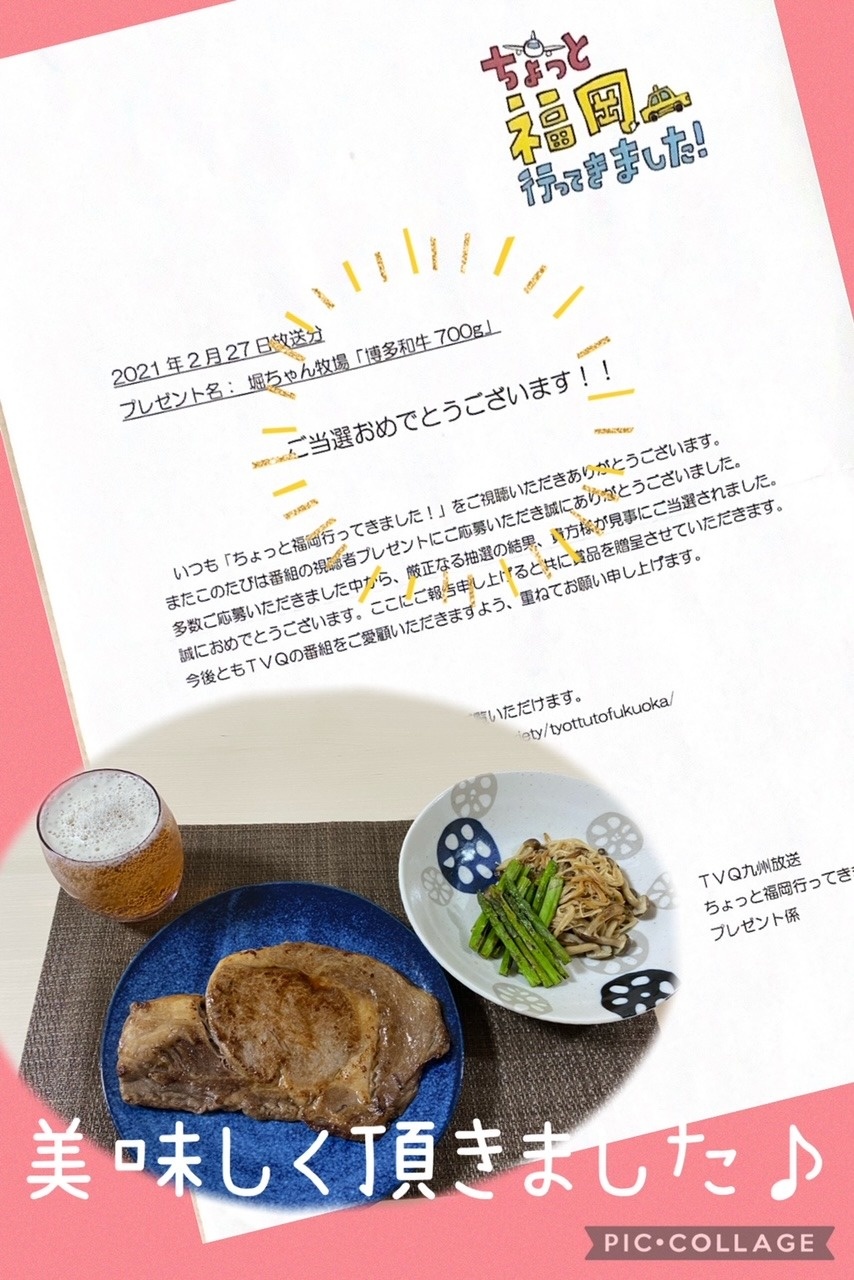 ちょっと
福岡
行ってきました!
2021年2月27日放送分
プレゼント名： 堀ちゃん牧場「博多和牛 700g」
ご当選おめでとうございます！！
いつも「ちょっと福岡行ってきました！」をご視聴いただきありがとうございます。
またこのたびは番組の視聴者プレゼントにご応募いただき誠にありがとうございました。
多数ご応募いただきました中から、厳正なる抽選の結果、貴方様が見事にご当選されました。
誠におめでとうございます。ここにご報告申し上げると共に賞品を贈呈させていただきます。
今後ともTVQの番組をご愛顧いただきますよう、重ねてお願い申し上げます。
いただけます。
iety/tyottutofukuoka/
TVQ九州放送
ちょっと福岡行ってき
プレゼント係
美味しく頂きました♪
PIC•COLLAGE